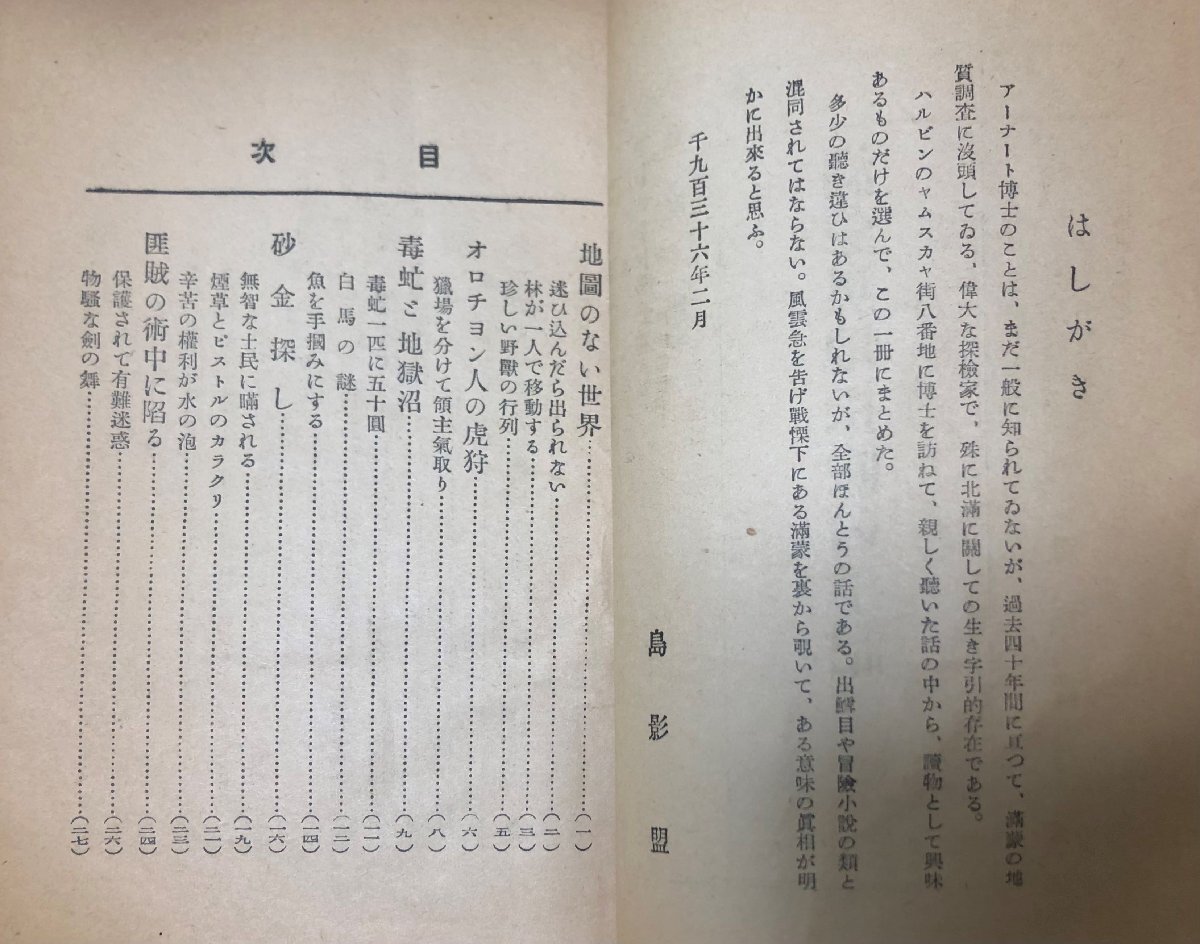 はしがき
アーナート博士のことは、まだ一般に知られてゐないが、過去四十年間に亘つて、滿蒙の地
質調査に沒頭してゐる、偉大な探檢家で、殊に北滿に關しての生き字引的存在である。
ハルビンのヤムスカヤ街八番地に博士を訪ねて、親しく聽いた話の中から、讀物として興味
あるものだけを選んで、この一冊にまとめた。
多少の聽き違ひはあるかもしれないが、全部ほんとうの話である。出鱈目や冒險小說の類と
混同されてはならない。風雲急を告げ戰慄下にある滿蒙を裏から覗いて、ある意味の眞相が明
かに出來ると思ふ。
千九百三十六年二月
島影盟
目次
地圖のない世界……(一)
迷ひ込んだら出られない……(二)
林が一人で移動する……(三)
珍しい野獸の行列……(五)
オロチヨン人の虎狩……(六)
獵場を分けて領主氣取り……(八)
毒虻と地獄沼……(九)
毒虻一匹に五十圓……(一一)
白馬の謎……(一二)
魚を手摑みにする……(一四)
砂金探し……(一六)
無智な土民に瞞される……(一九)
煙草とピストルのカラクリ……(二一)
辛苦の權利が水の泡……(二三)
匪賊の術中に陷る……(二四)
保護されて有難迷惑……(二六)
物騷な劍の舞……(二七)